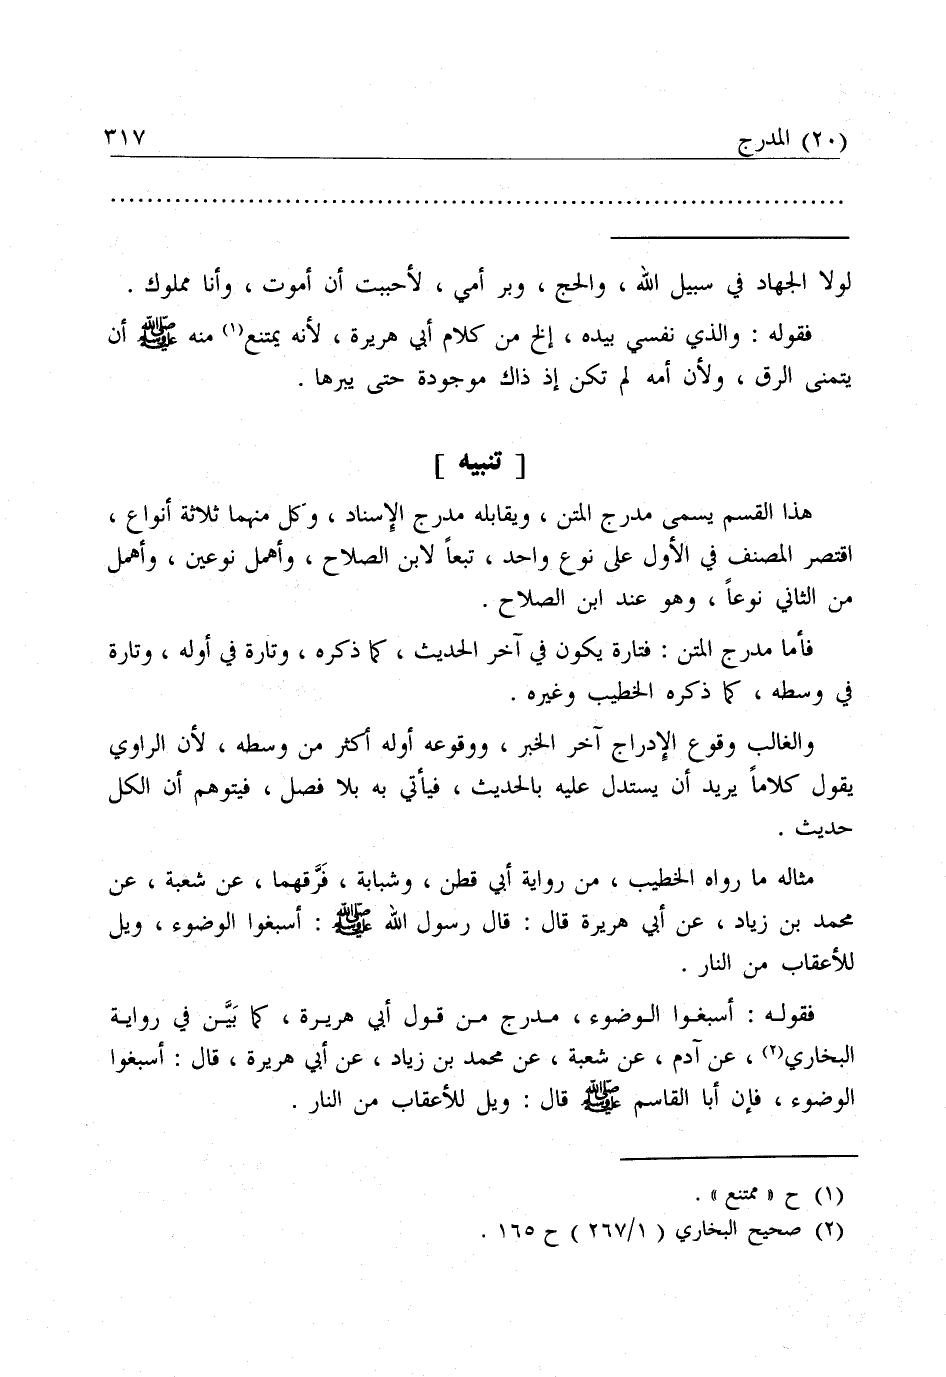 (٢٠) المدرج ٣١٧
لولا الجهاد في سبيل الله ، والحج ، وبر أمي ، لأحببت أن أموت ، وأنا مملوك .
فقوله : والذي نفسي بيده ، إلخ من كلام أبي هريرة ، لأنه يمتنع(١) منه ﷺ أن
يتمنى الرق ، ولأن أمه لم تكن إذ ذاك موجودة حتى يبرها .
[ تنبيه ]
هذا القسم يسمى مدرج المتن ، ويقابله مدرج الإسناد ، وكل منهما ثلاثة أنواع ،
اقتصر المصنف في الأول على نوع واحد ، تبعاً لابن الصلاح ، وأهمل نوعين ، وأهمل
من الثاني نوعاً ، وهو عند ابن الصلاح .
فأما مدرج المتن : فتارة يكون في آخر الحديث ، كما ذكره ، وتارة في أوله ، وتارة
في وسطه ، كما ذكره الخطيب وغيره .
والغالب وقوع الإدراج آخر الخبر ، ووقوعه أوله أكثر من وسطه ، لأن الراوي
يقول كلاماً يريد أن يستدل عليه بالحديث ، فيأتي به بلا فصل ، فيتوهم أن الكل
حديث .
مثاله ما رواه الخطيب ، من رواية أبي قطن ، وشبابة ، فَرَّقهما ، عن شعبة ، عن
محمد بن زياد ، عن أبي هريرة قال : قال رسول الله ﷺ : أسبغوا الوضوء ، ويل
للأعقاب من النار .
فقوله : أسبغوا الوضوء ، مدرج من قول أبي هريرة ، كما بَيَّن في رواية
البخاري(٢) ، عن آدم ، عن شعبة ، عن محمد بن زياد ، عن أبي هريرة ، قال : أسبغوا
الوضوء ، فإن أبا القاسم ﷺ قال : ويل للأعقاب من النار .
(١) ح « ممتنع » .
(٢) صحيح البخاري ( ٢٦٧/١ ) ح ١٦٥ .